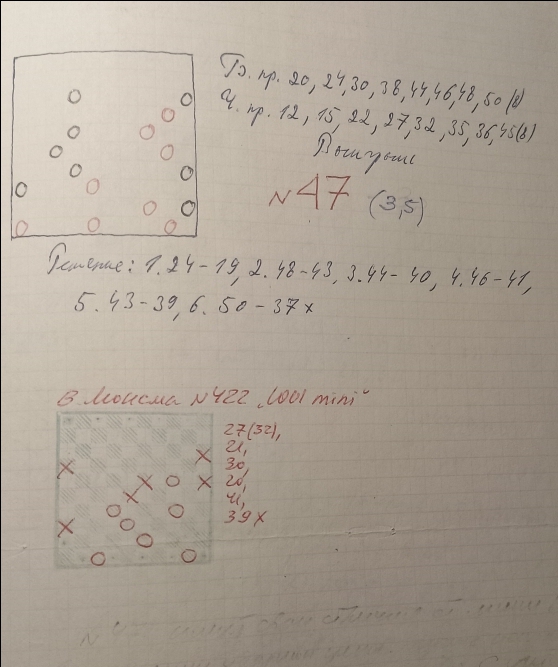 Бэ. пр. 20, 24, 30, 38, 44, 46, 48, 50 (8)
Ч. пр. 12, 15, 22, 27, 32, 35, 36, 45 (8)
Выигрыш
N 47 (3,5)
Решение: 1. 24-19, 2. 48-43, 3. 44-40, 4. 46-41,
5. 43-39, 6. 50-37 x
В. Мокема N422 „1001 mini"
27(32),
21,
30,
20,
41,
39 X